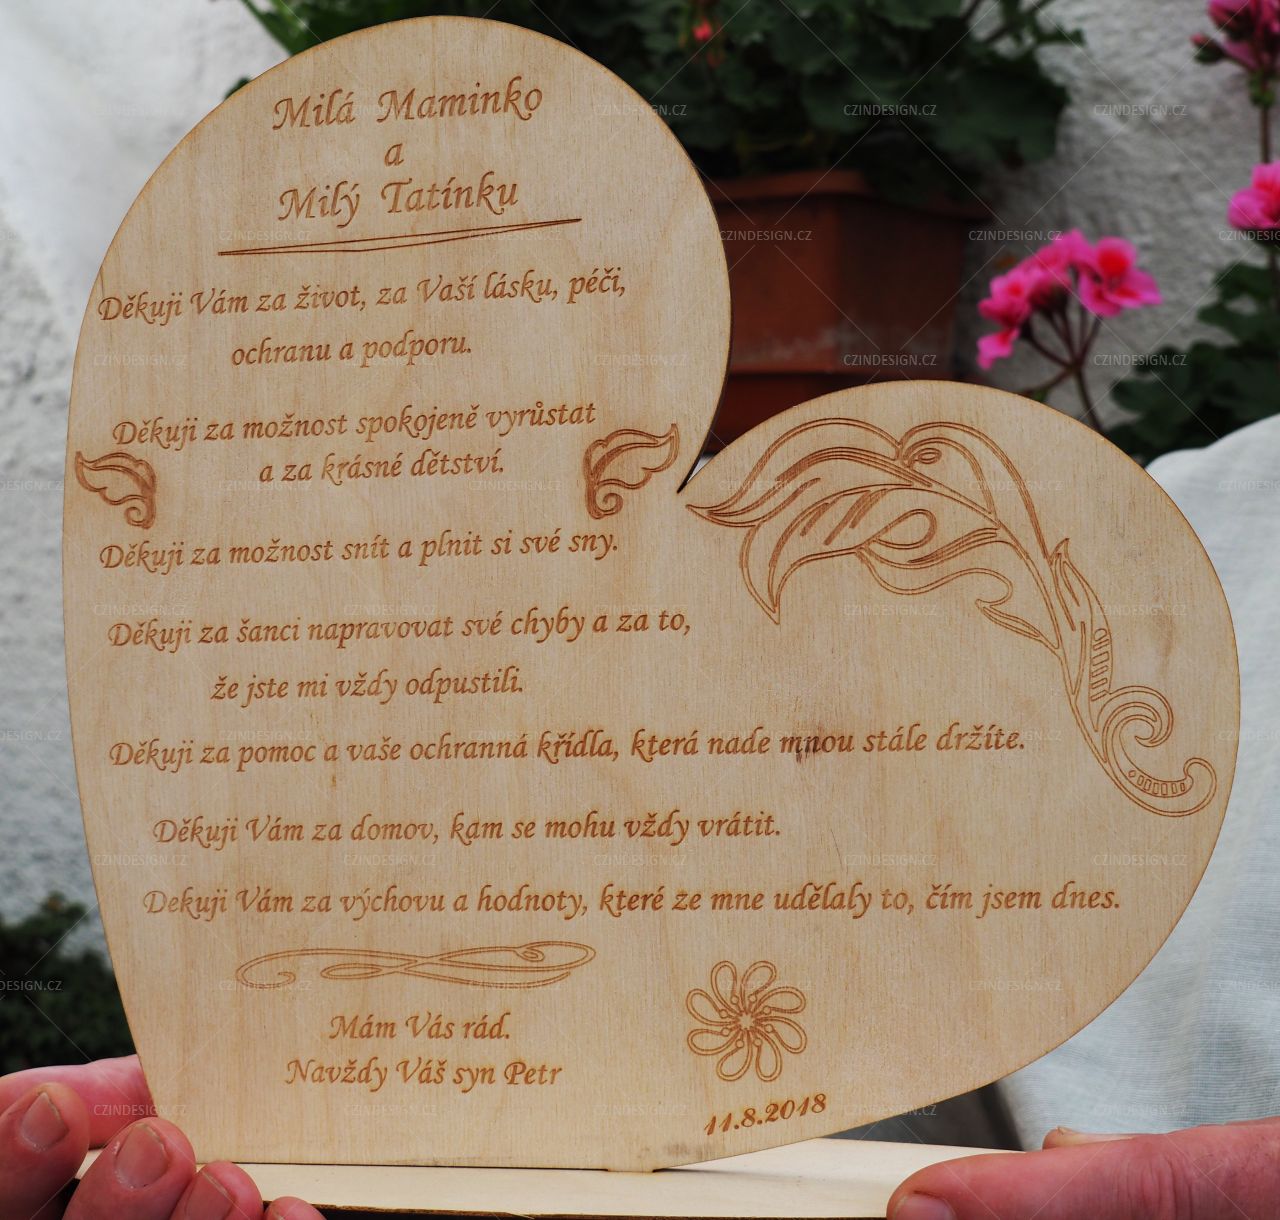 Milá Maminko
a
Milý Tatínku
Děkuji Vám za život, za Vaší lásku, péči,
ochranu a podporu.
Děkuji za možnost spokojeně vyrůstat
a za krásné dětství.
Děkuji za možnost snít a plnit si své sny.
Děkuji za šanci napravovat své chyby a za to,
že jste mi vždy odpustili.
Děkuji za pomoc a vaše ochranná křídla, která nade mnou stále držíte.
Děkuji Vám za domov, kam se mohu vždy vrátit.
Dekuji Vám za výchovu a hodnoty, které ze mne udělaly to, čím jsem dnes.
Mám Vás rád.
Navždy Váš syn Petr
11.8.2018
CZINDESIGN.CZ